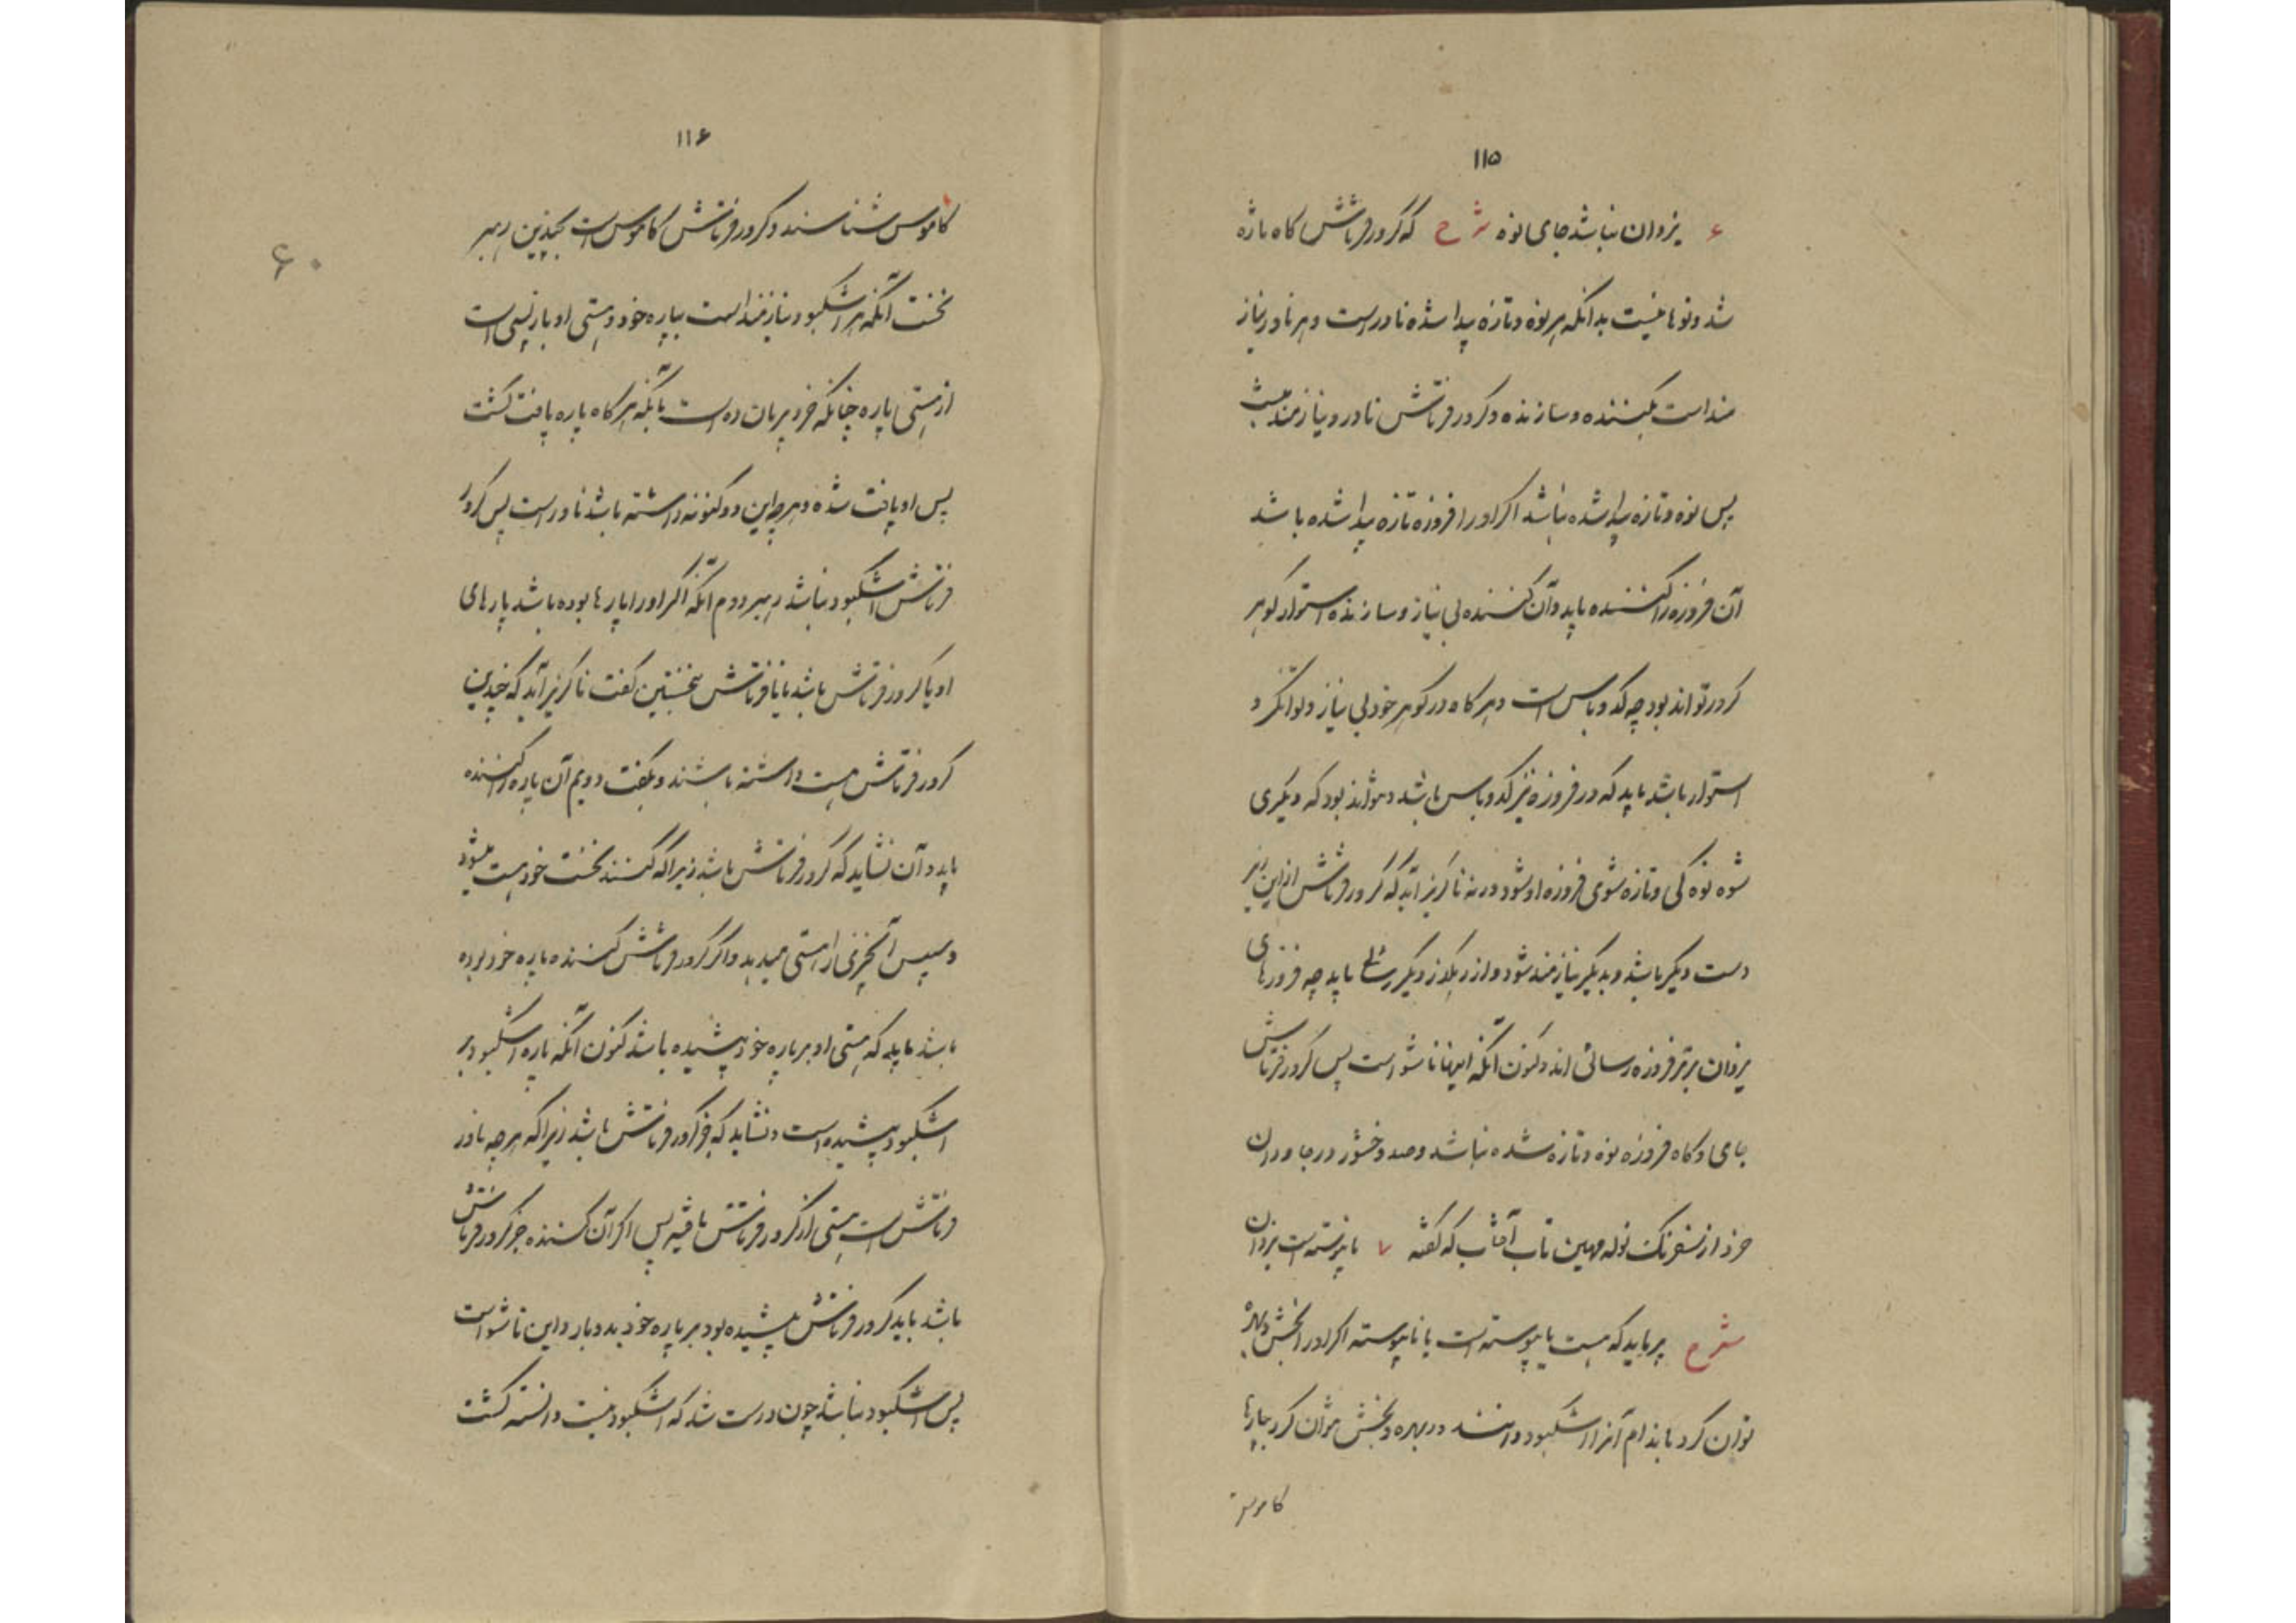 ۱۱۵
۶ یزدان نباشد جای نوه شرح که کرور فرتاش کاه تازه
شد و نوها نیست بدانکه هر نوه و تازه پیدا شده ناور است و هر ناور نیاز
مند است بکننده و سازنده و کرور فرتاش ناور و نیازمند نیست
پس نوه و تازه پیدا شده نباشد اگر او را فروزه تازه پیدا شده باشد
آن فروزه را کننده باید و آن کننده بی نیاز و سازنده استوار گوهر
کرور تواند بود چه کدو باس است و هر گاه در گوهر خود بی نیاز و توانگر و
استوار باشد باید که در فروزه نیز کدو باس باشد و نتواند بود که دیگری
شوه نوه گی و تازه شوی فروزه او شود ورنه ناگزیر آید که کرور فرتاش از این بر
دست دیگر باشد و بدیگر نیازمند شود و از رهگذر دیگر رسائی یابد چه فروزهای
یزدان برتر فروزه رسائی اند و کنون آنکه اینها ناشواست پس کرور فرتاش
جای و گاه فروزه نوه و تازه شده نباشد و صد وخشور در جاودان
خرد از سفرنگ نوله مهین تاب آفتاب که گفته ۷ ناپرسته است یزدان
شرح هر باید که هست یا پیوسته است یا ناپیوسته اگر او را بخش و بهره
توان کرد باندام آنرا اشکیود دانند و ر بهره و بخش نتوان کرد بپارها
کاموس
۱۱۶
کاموس شناسند و کرور فرتاش کاموس است بچندین رهبر
نخست آنکه هر اشکیود نیازمند است بپاره خود و هستی او بازپسی است
از هستی پاره چنانکه خرد پرمان ده است بآنکه هر گاه پاره یافت گشت
پس او یافت شده و هر چه این دو گونه داشته باشد ناور است پس کرور
فرتاش اشکیود نباشد رهبر دوم آنکه اگر او را پارها بوده باشد پارهای
او یا کرور فرتاش باشد یا نافرتاش بنخستین گفت ناگزیر آید که چندین
کرور فرتاش هست داشته باشند و بگفت دویم آن پاره را کننده
باید و آن نشاید که کرور فرتاش باشد زیرا که کننده نخست خود هست میشود
و سپس آنچیزی را هستی میدهد و اگر کرور فرتاش کننده پاره خود بوده
باشد باید که هستی او بر پاره خود پیشیده باشد کنون آنکه پاره اشکیود بر
اشکیود پیشیده است و نشاید که جز کرور فرتاش باشد زیرا که هر چه ناور
فرتاش است هستی از کرور فرتاش یافته پس اگر آن کننده جز کرور فرتاش
باشد باید کرور فرتاش پیشیده بود بر پاره خود بدو بار و این ناشواست
پس اشکیود نباشد چون درست شد که اشکیود نیست دانسته گشت
۶۰